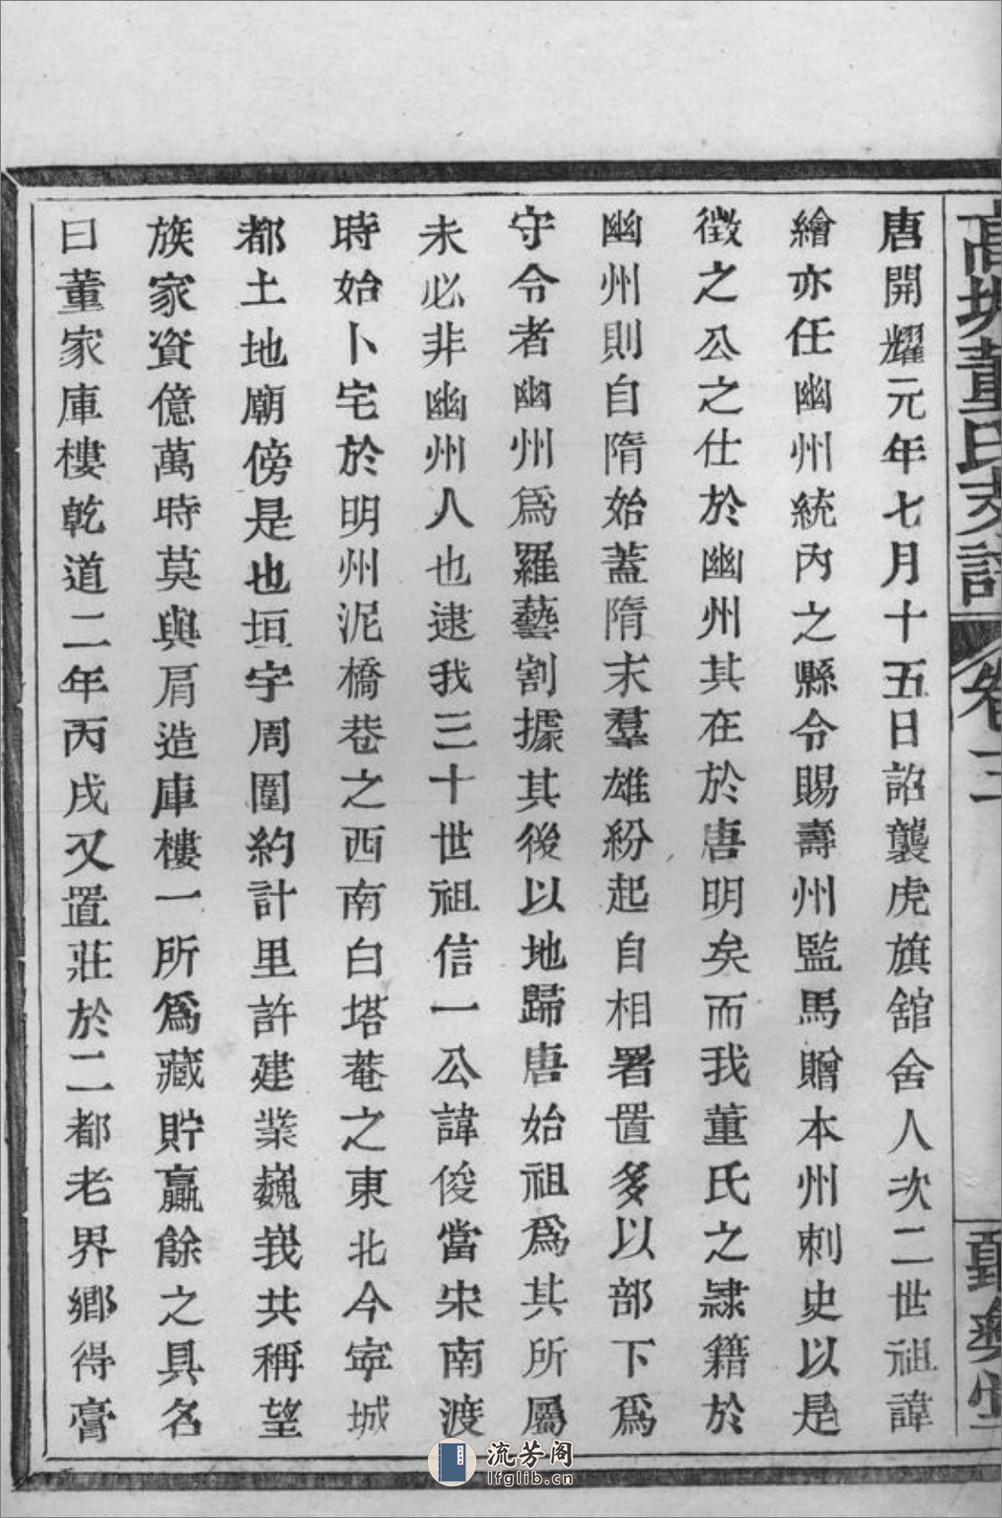 高塘董氏支譜
卷二
唐開耀元年七月十五日詔襲虎旗舘舍人次二世祖諱
繪亦任幽州統內之縣令賜壽州監馬贈本州刺史以是
徵之公之仕於幽州其在於唐明矣而我董氏之隷籍於
幽州則自隋始蓋隋末羣雄紛起自相署置多以部下爲
守令者幽州爲羅藝割據其後以地歸唐始祖爲其所屬
未必非幽州人也逮我三十世祖信一公諱俊當宋南渡
時始卜宅於明州泥橋巷之西南白塔菴之東北今寧城
都土地廟傍是也垣宇周圍約計里許建業巍峩共稱望
族家資億萬時莫與肩造庫樓一所爲藏貯贏餘之具名
曰董家庫樓乾道二年丙戌又置莊於二都老界鄉得膏
流芳阁
lfglib.cn